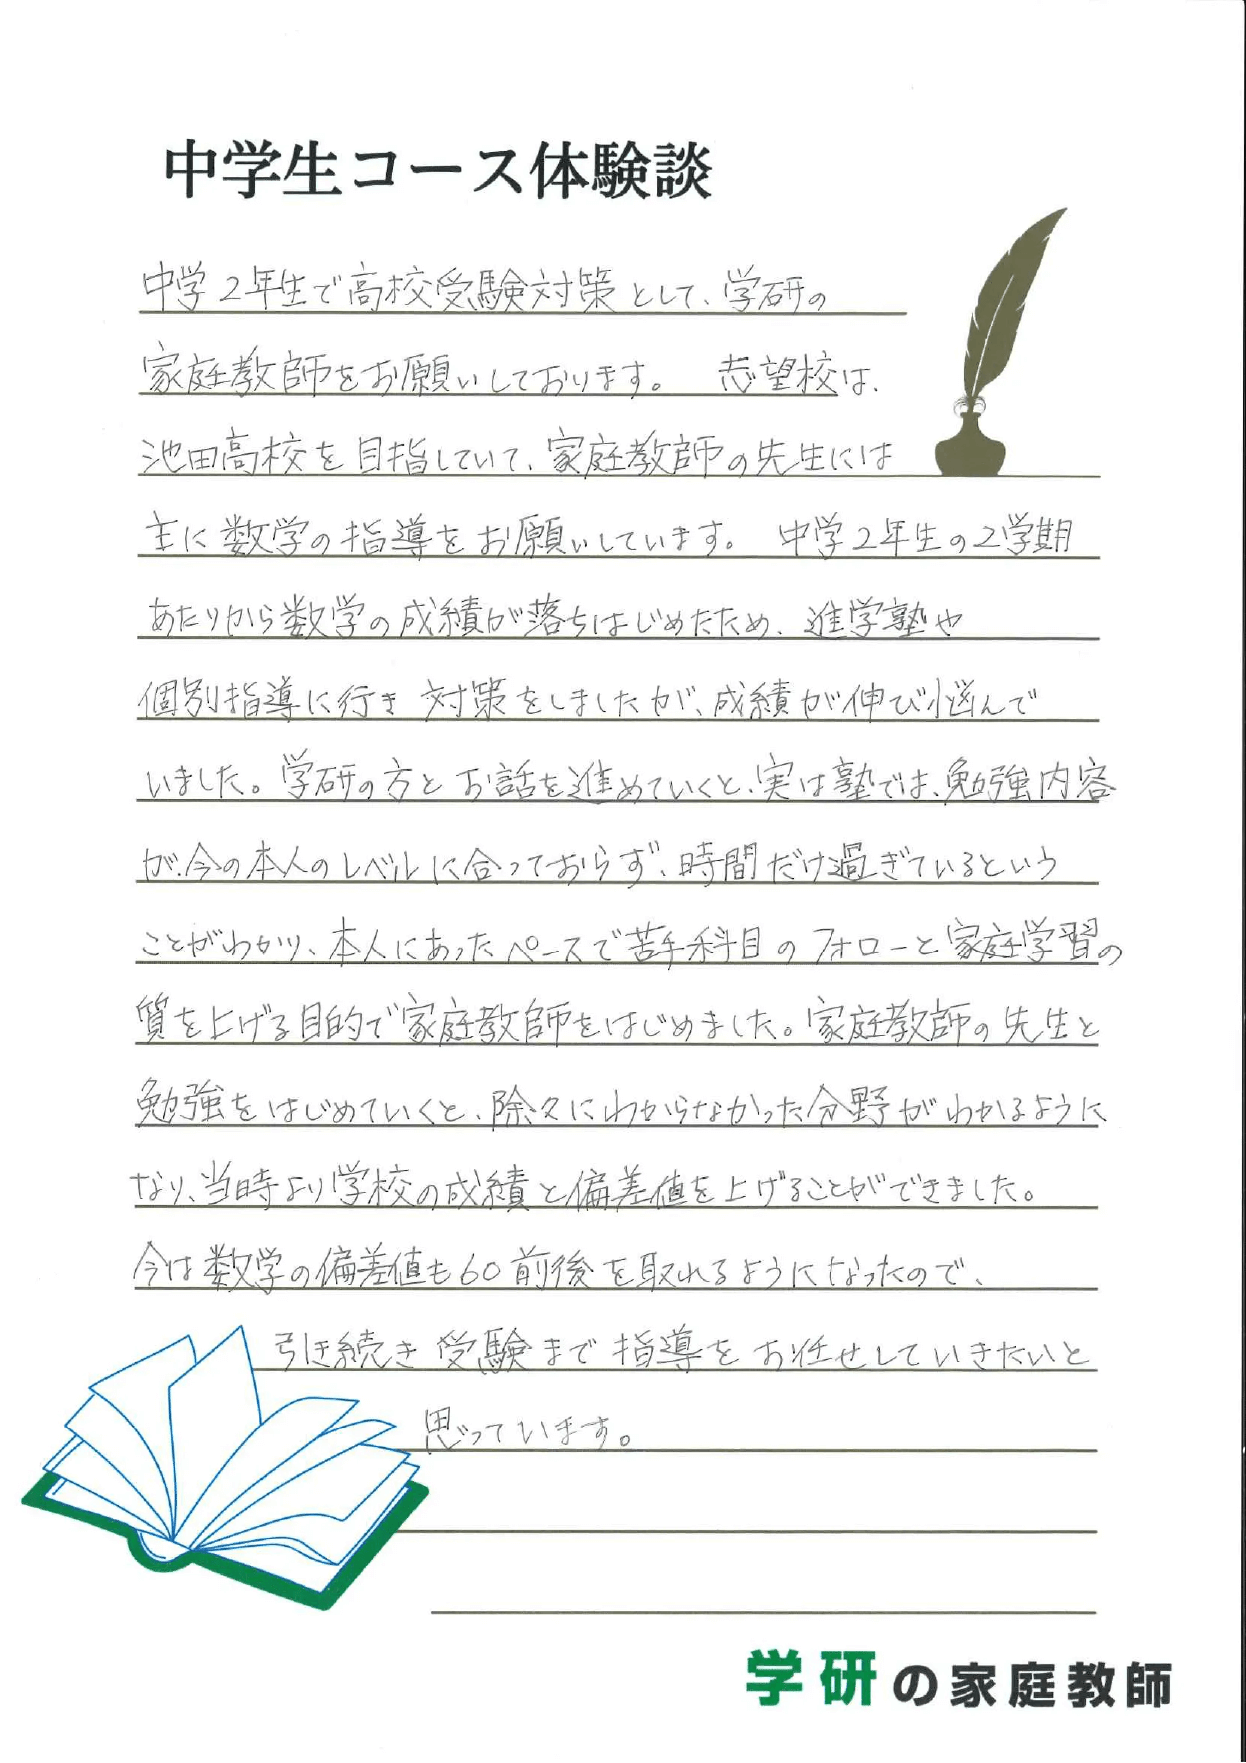 中学生コース体験談
中学2年生で高校受験対策として、学研の
家庭教師をお願いしております。 志望校は、
池田高校を目指していて、家庭教師の先生には
主に数学の指導をお願いしています。 中学2年生の2学期
あたりから数学の成績が落ちはじめたため、進学塾や
個別指導に行き対策をしましたが、成績が伸び悩んで
いました。学研の方とお話を進めていくと、実は塾では、勉強内容
が、今の本人のレベルに合っておらず、時間だけ過ぎているという
ことがわかり、本人にあったペースで苦手科目のフォローと家庭学習の
質を上げる目的で家庭教師をはじめました。家庭教師の先生と
勉強をはじめていくと、除々にわからなかった分野がわかるように
なり、当時より学校の成績と偏差値を上げることができました。
今は数学の偏差値も60前後を取れるようになったので、
引き続き受験まで指導をお任せしていきたいと
思っています。
学研の家庭教師